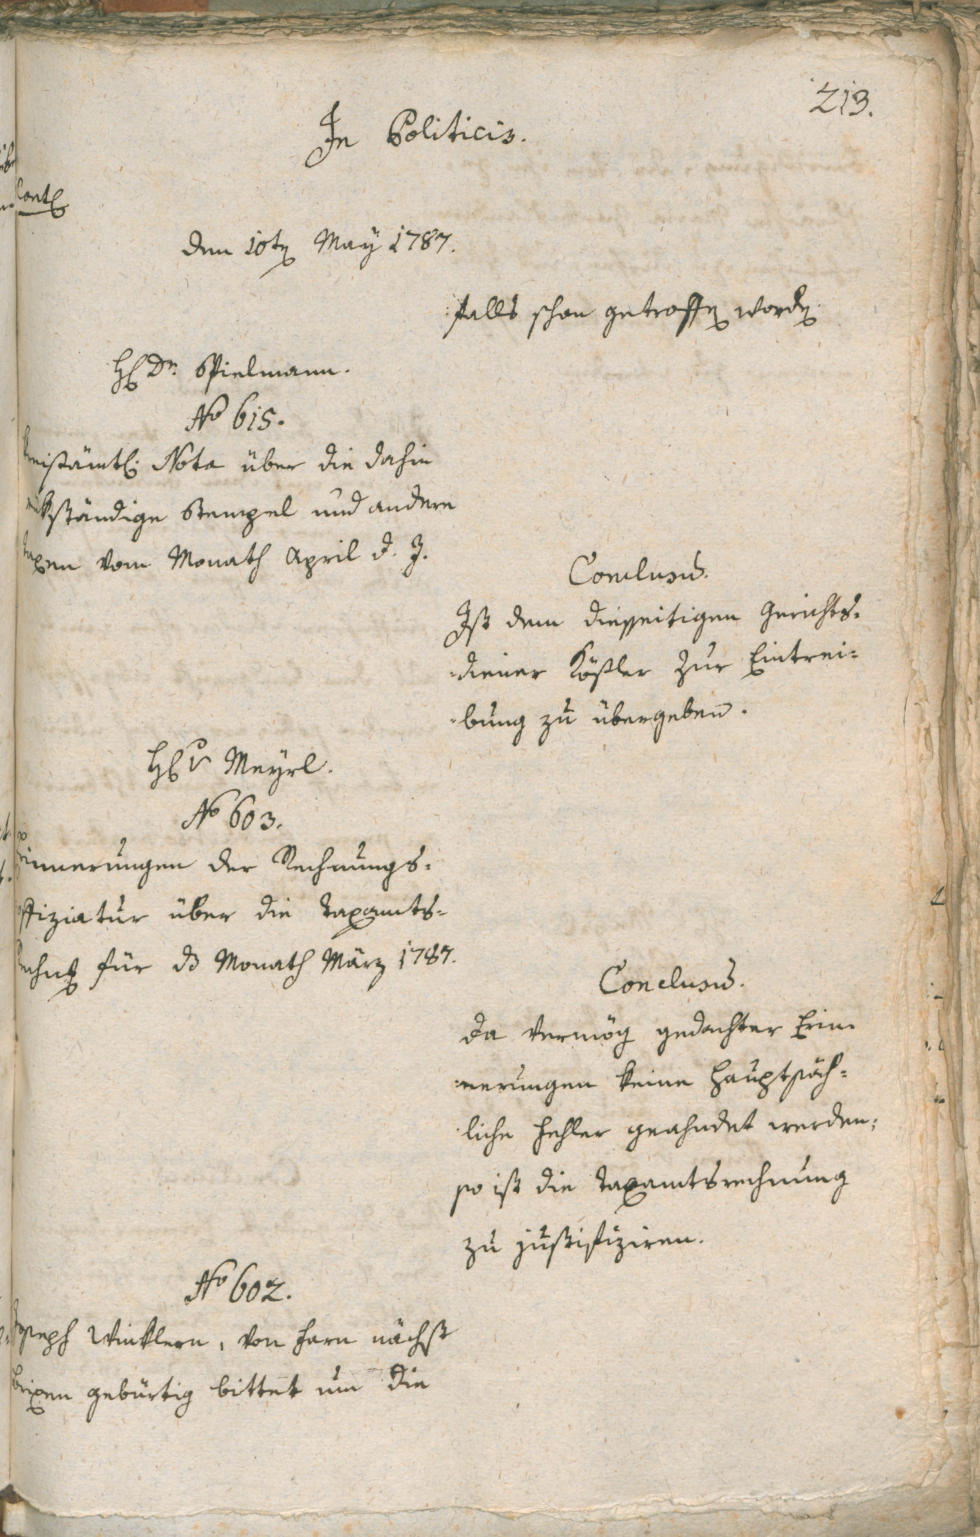 213.
In Politicis.
Contẽ
den 10tẽ Maÿ 1787.
falls schon getroffẽ wordẽ.
H. Dr. Spielmann.
No 615.
Kreisämtl. Nota über die dahin
rükständige Stempel und andere
Taxen vom Monath April d. J.
Conclusũ.
Ist dem diesseitigen Gerichts-
diener Kößler zur Eintrei-
bung zu übergeben.
H. v Meÿrl.
No 603.
Erinnerungen der Rechnungs-
offiziatur über die Taxamts-
rechnũg für dß Monath März 1787.
Conclusũ.
Da vermög gedachter Erin-
nerungen keine hauptsäch-
liche Fehler geahndet werden;
so ist die Taxamtsrechnung
zu justifiziren.
No 602.
Joseph Winklern, von Sarn nächst
Brixen gebürtig bittet um die